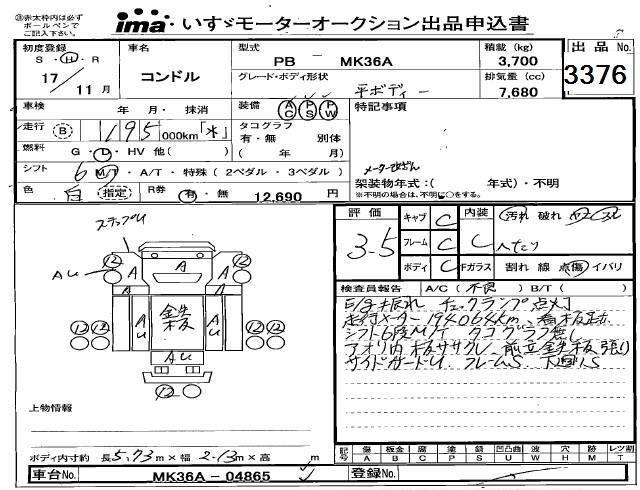 ㊟赤太枠内は必ず
ボールペンで
ご記入下さい。
ima・いすゞモーターオークション出品申込書
初度登録 車名 型式 積載 (kg) 出品No.
S・H・R コンドル PB － MK36A 3,700 3376
17年 11月 グレード・ボディ形状 平ボディー 排気量 (cc) 7,680
車検 年 月・抹消 装備 AC PS PW 特記事項
走行 B 195,000km「*」 タコグラフ
有・無 別体
燃料 G・D・HV 他( ) ( 年 月)
シフト 6 M/T・A/T・特殊(2ペダル・3ペダル) メーター改ざん
架装物年式:( 年式)・不明
色 白 指定 R券 有・無 12,690 円 ※不明の場合は、不明に○をする。
評価 3.5 キャブ C 内装 C 汚れ 破れ
フレーム C へたり
ボディ C Fガラス 割れ 線 点傷 イバリ
検査員報告 A/C( 不良 ) B/T( )
E/G振れ チェックランプ点灯
走行メーター194064km 看板跡
シフト6段M/T タコグラフ無し
アオリ内板ササクレ 前立鉄板張り
サイドガードU フレームS 下廻りS
ステップU
AU
12 12
A A A
A A
AU 鉄板 AU
12 12 12 12
12
上物情報
ボディ内寸約 長5.73m×幅2.13m×高 m
記号 傷 A 板金 B 腐 C 塗 P 錆 S 凹凸曲 U 波 W 穴 H メリ M レツ割 T
車台No. MK36A－04865 登録No.